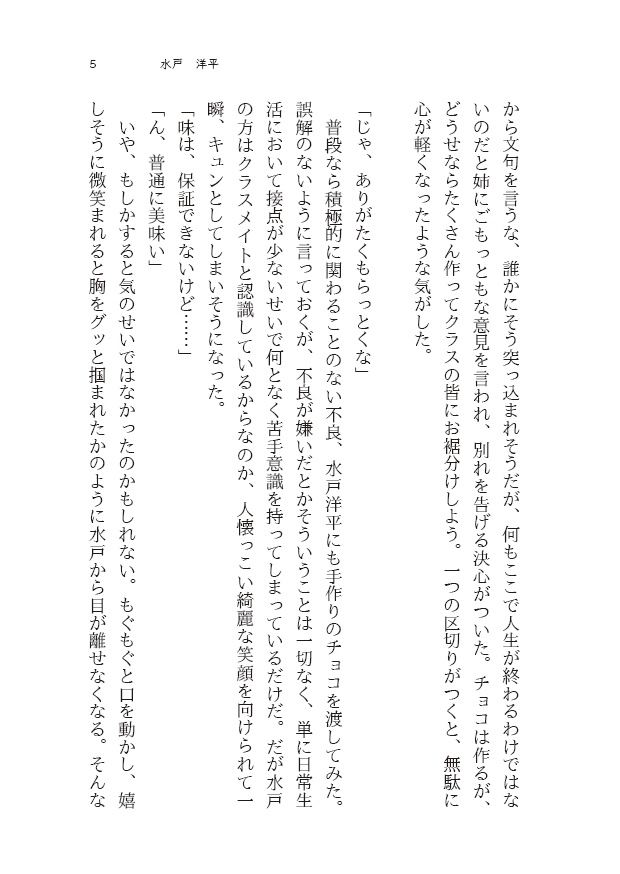 5　水戸　洋平
から文句を言うな、誰かにそう突っ込まれそうだが、何もここで人生が終わるわけではな
いのだと姉にごもっともな意見を言われ、別れを告げる決心がついた。チョコは作るが、
どうせならたくさん作ってクラスの皆にお裾分けしよう。一つの区切りがつくと、無駄に
心が軽くなったような気がした。
「じゃ、ありがたくもらっとくな」
普段なら積極的に関わることのない不良、水戸洋平にも手作りのチョコを渡してみた。
誤解のないように言っておくが、不良が嫌いだとかそういうことは一切なく、単に日常生
活において接点が少ないせいで何となく苦手意識を持ってしまっているだけだ。だが水戸
の方はクラスメイトと認識しているからなのか、人懐っこい綺麗な笑顔を向けられて一
瞬、キュンとしてしまいそうになった。
「味は、保証できないけど……」
「ん、普通に美味い」
いや、もしかすると気のせいではなかったのかもしれない。もぐもぐと口を動かし、嬉
しそうに微笑まれると胸をグッと掴まれたかのように水戸から目が離せなくなる。そんな